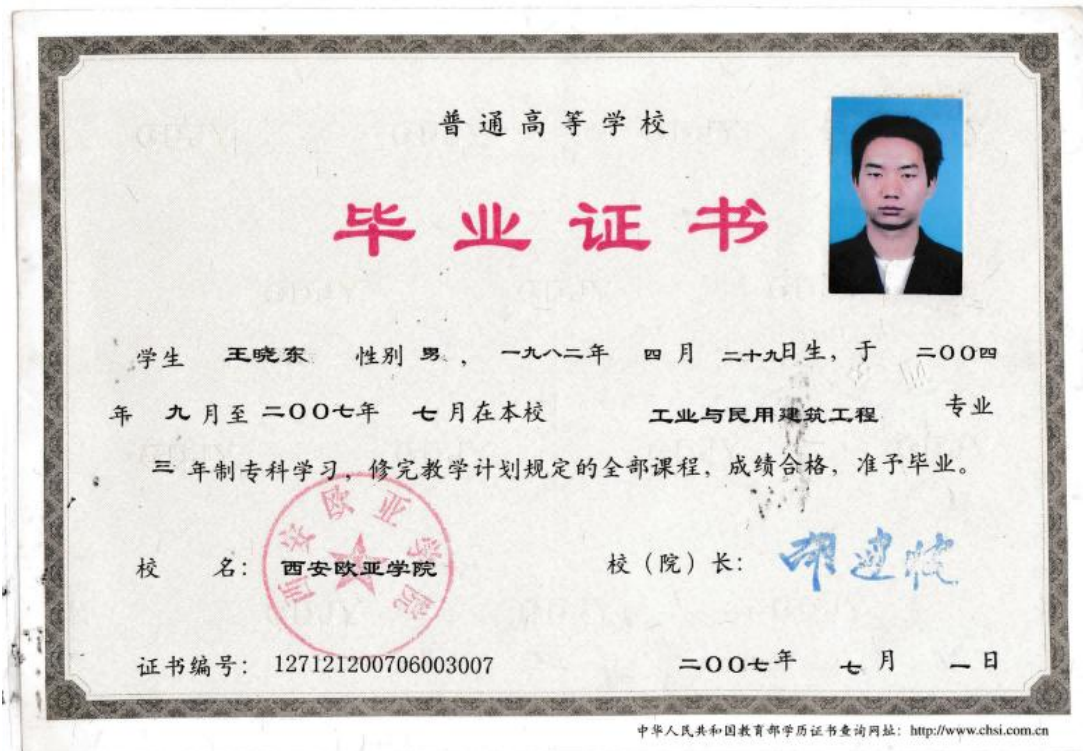 普通高等学校
毕业证书
学生 王晓东 性别 男，一九八二年 四月 二十九日生，于 二〇〇四
年 九月至二〇〇七年 七月在本校 工业与民用建筑工程 专业
三年制专科学习，修完教学计划规定的全部课程，成绩合格，准予毕业。
西安欧亚学院
校 名：西安欧亚学院 校（院）长：胡建波
证书编号：127121200706003007 二〇〇七年 七月 一日
中华人民共和国教育部学历证书查询网址：http://www.chsi.com.cn